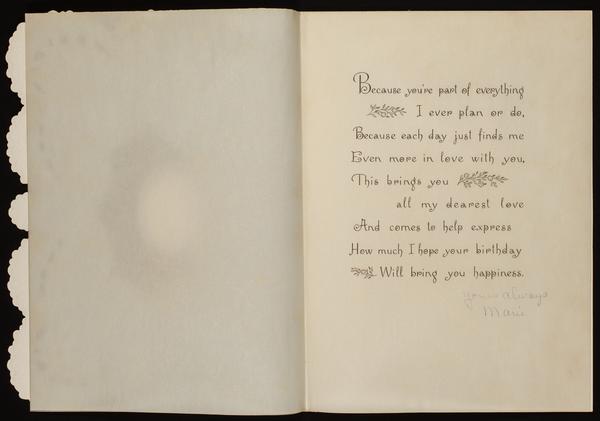 Because you're part of everything
I ever plan or do,
Because each day just finds me
Even more in love with you,
This brings you
all my dearest love
And comes to help express
How much I hope your birthday
Will bring you happiness.
Yours always
Marie